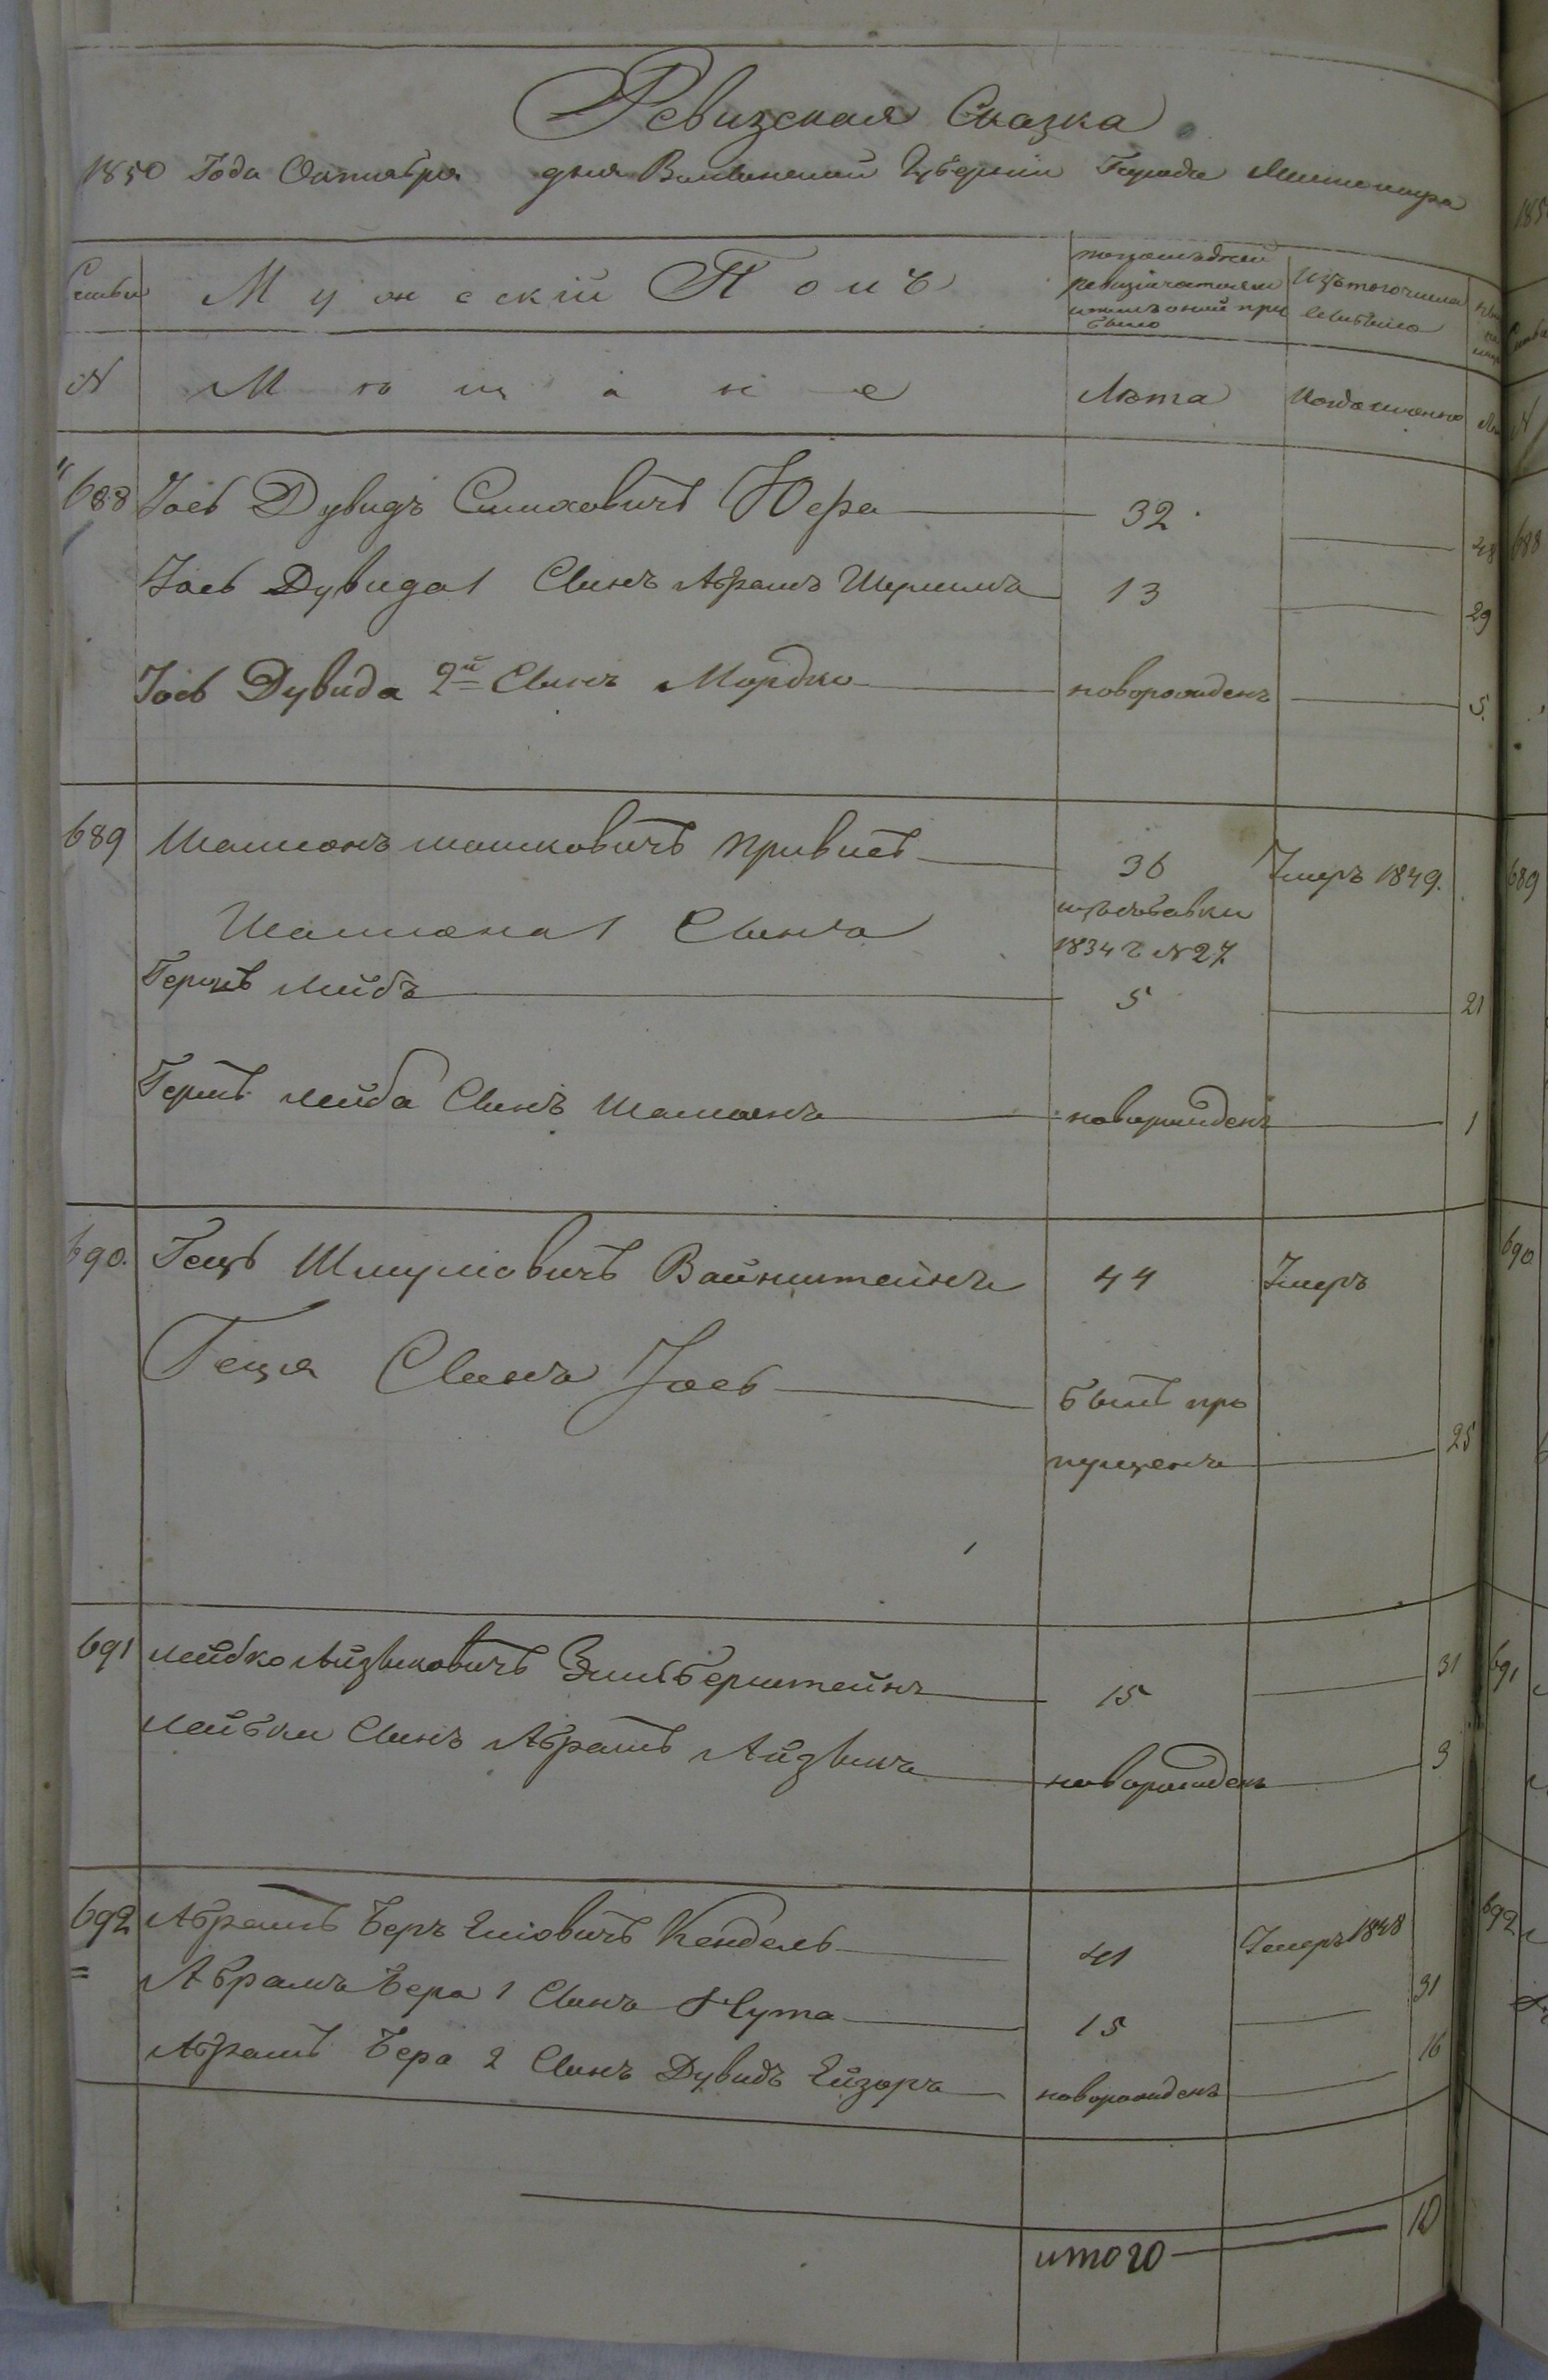 Ревизская Сказка
1850 Года Октября дня Волынской Губернии Города Житомира
Семьи Мужеский Полъ По последней ревизіи состояло и послѣ оной прибыло Изъ того числа выбыло
N Мѣщане Лѣта Когда именно Лѣ
688 Іосъ Дувидъ Симховичъ Юфа 32 48
Іось Дувида 1 Сынъ Абрамъ Шулимъ 13 29
Іось Дувида 2й Сынъ Мордко новорожденъ 5
689 Шаліонъ Мошковичъ Привисъ 36 Умеръ 1849.
изъ добавки
Шаліона 1 Сынъ 1834 г N 27.
Гершъ Лейбъ 5 21
Гершъ Лейба Сынъ Шаліонъ новорожденъ 1
690. Гецъ Шмулiовичъ Вайнштейнъ 44 Умеръ
Геця Сынъ Іось былъ про
пущенъ 25
691 Лейбко Айзыковичъ Зильберштейнъ 15 31
Лейбки Сынъ Абрамъ Айзыкъ новорожденъ 3
692 Абрамъ Беръ Еліовичъ Кендель 41 Умеръ 1848
Абрамъ Бера 1 Сынъ Нута 15 31
Абрамъ Бера 2 Сынъ Дувидъ Ейзоръ новорожденъ 16
итого 10